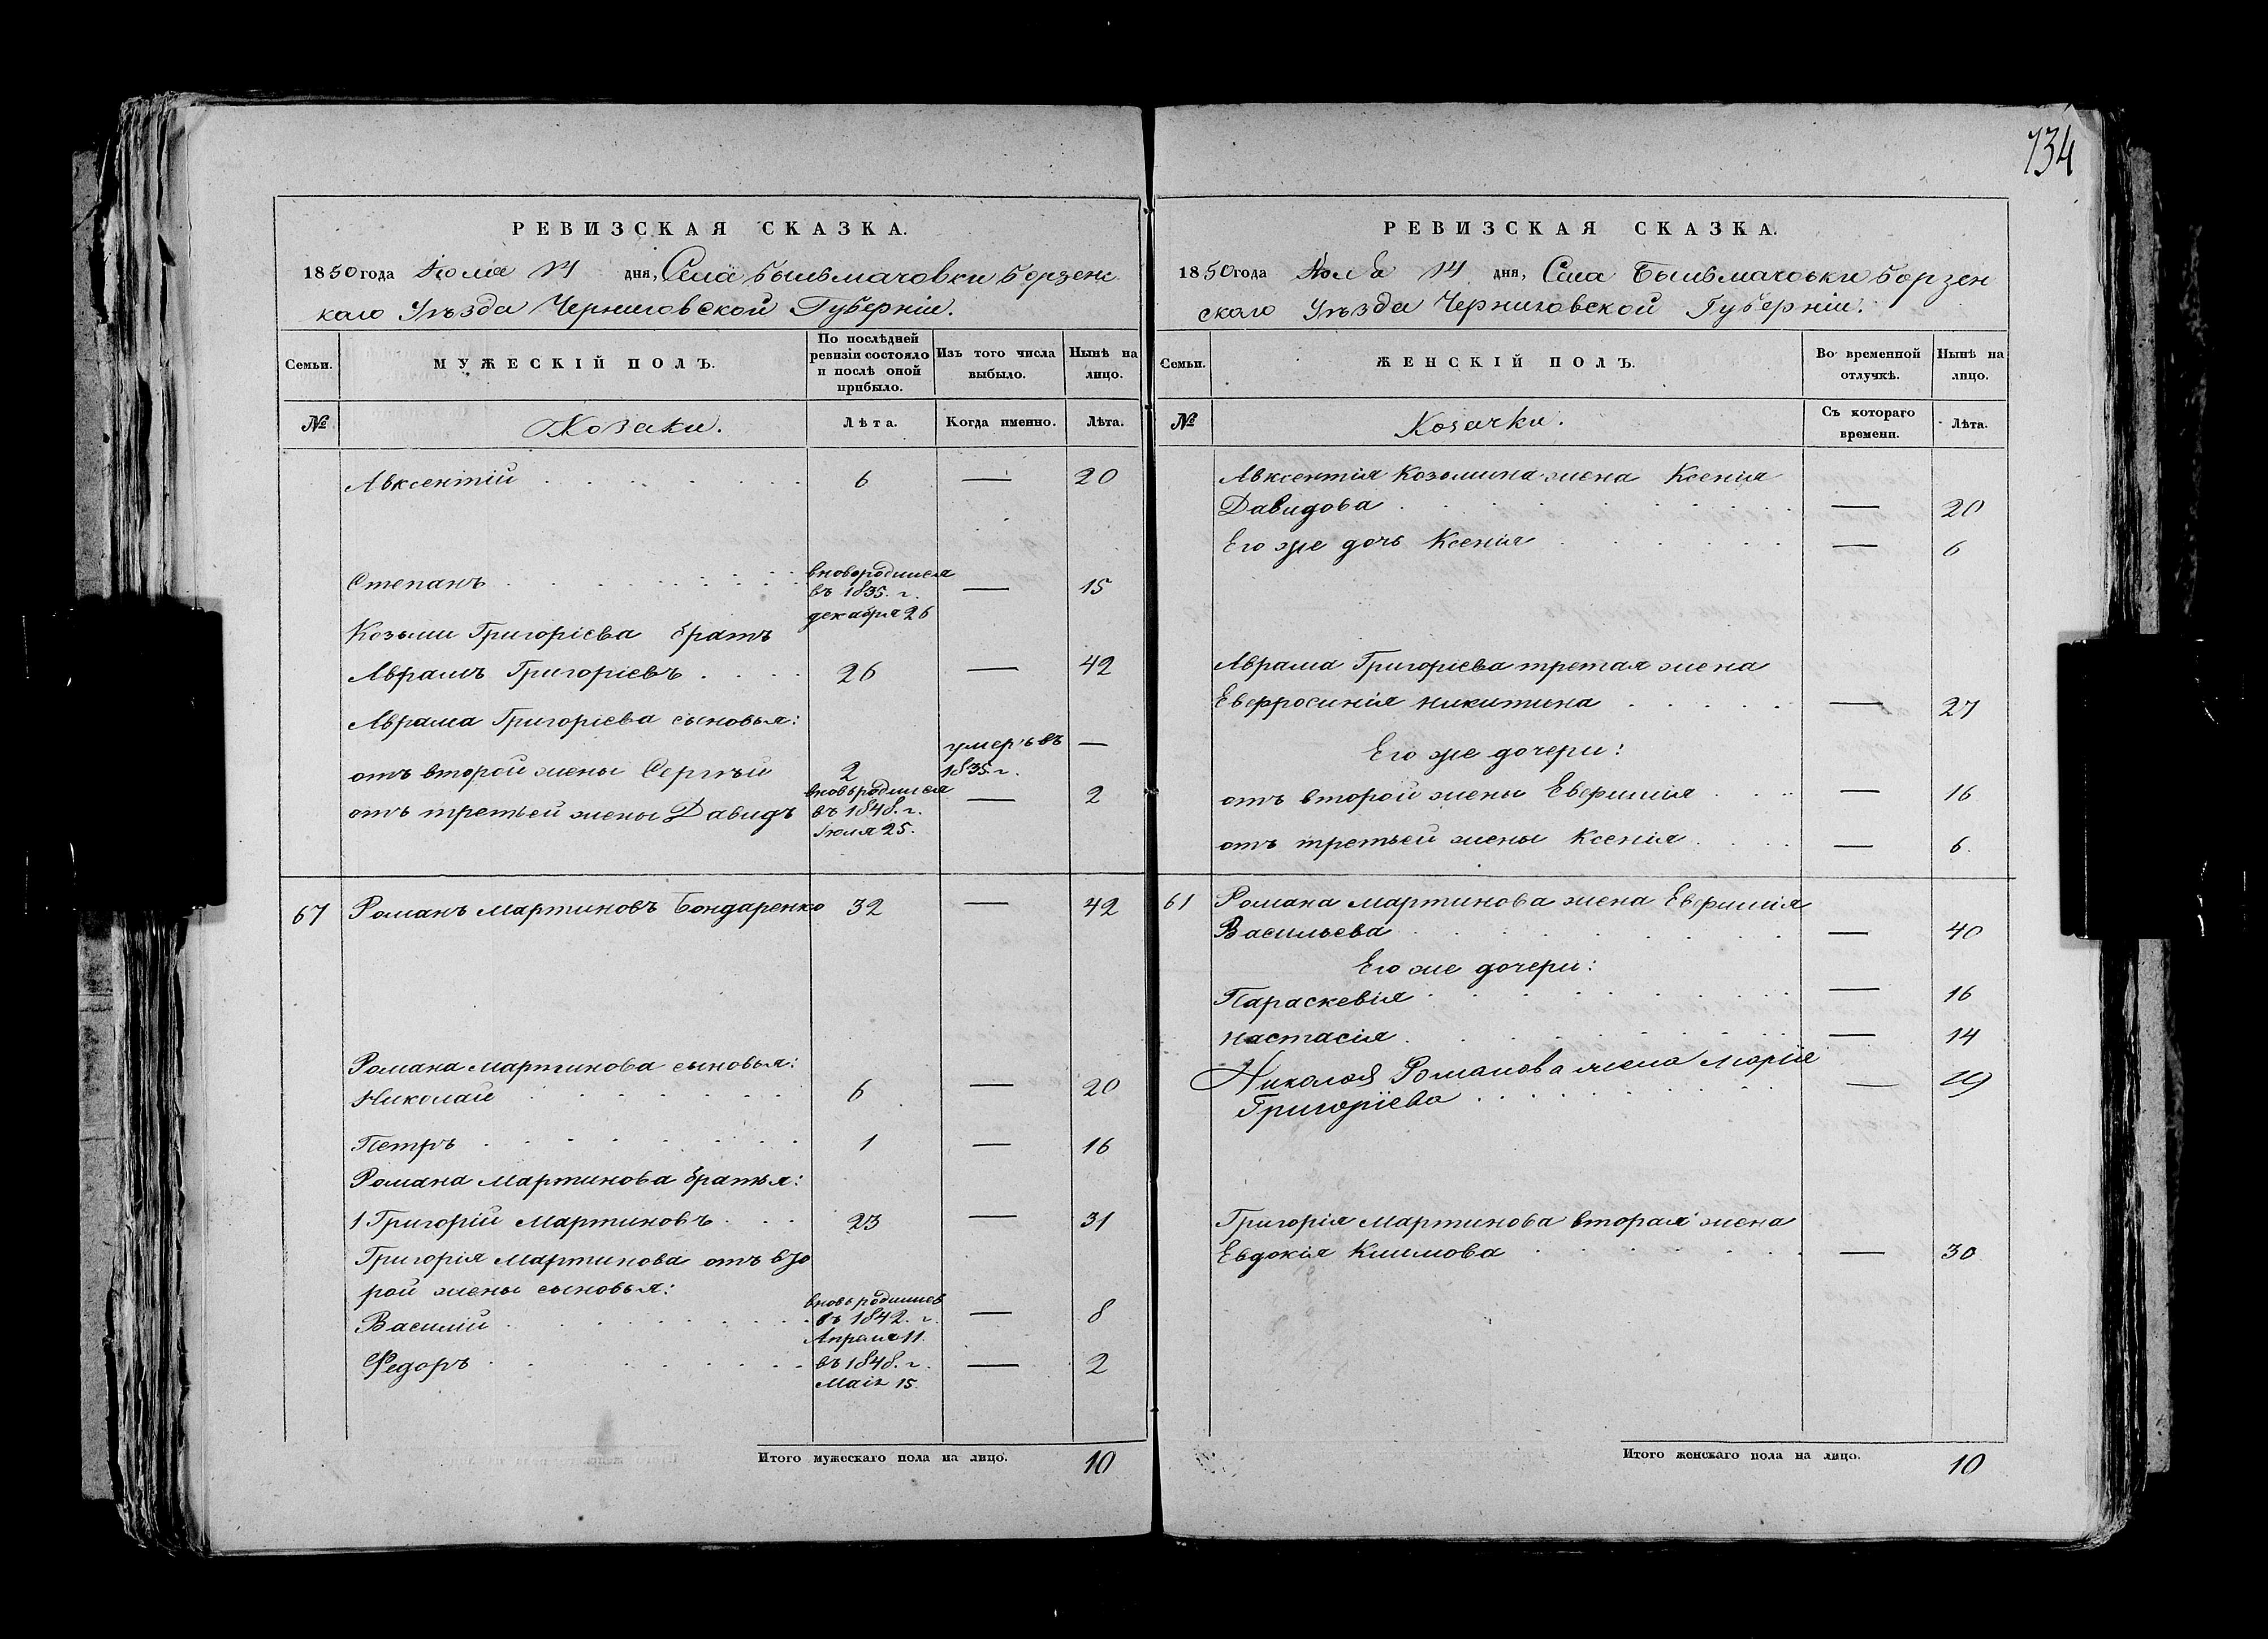 134
РЕВИЗСКАЯ СКАЗКА.
1850 года Июля 14 дня, Села Бывьмачовки Борзенс
каго Уѣзда Черниговской Губерніи.
Семьи. МУЖЕСКІЙ ПОЛЪ. По послѣдней ревизіи состояло и послѣ оной прибыло. Изъ того числа выбыло. Нынѣ на лицо.
№ Козаки. Лѣта. Когда именно. Лѣта.
Авксентій 6 — 20
Степанъ вновородился въ 1835. г. декабря 26 — 15
Козьми Григоріева братъ
Аврамъ Григоріевъ 26 — 42
Аврама Григоріева сыновья:
отъ второй жены Сергѣй 2 умеръ въ 1835 г. —
отъ третьей жены Давидъ вновьродился въ 1848. г. Іюля 25. — 2
67 Романъ Мартиновъ Бондаренко 32 — 42
Романа Мартинова сыновья:
Николай 6 — 20
Петръ 1 — 16
Романа Мартинова братья:
1 Григорій Мартиновъ 23 — 31
Григорія Мартинова отъ вто
рой жены сыновья:
Василій вновь родился въ 1842. г. Апреля 11. — 8
Федоръ въ 1848. г. Маія 15. — 2
Итого мужескаго пола на лицо. 10
РЕВИЗСКАЯ СКАЗКА.
1850 года Июля 14 дня, Села Бывьмачовки Борзен
скаго Уѣзда Черниговской Губерніи.
Семьи. ЖЕНСКІЙ ПОЛЪ. Во временной отлучкѣ. Нынѣ на лицо.
№ Козачки. Съ котораго времени. Лѣта.
Авксентія Козьмина жена Ксенія
Давидова — 20
Его же дочь Ксенія — 6
Аврама Григоріева третая жена
Евфросинія Никитина — 27
Его же дочери:
отъ второй жены Евфимія — 16
отъ третьей жены Ксенія — 6.
61 Романа Мартинова жена Евфимія
Васильева — 40
Его же дочери:
Параскевія — 16
Настасія — 14
Николая Романова жена Марія
Григоріева — 19
Григорія Мартинова вторая жена
Евдокія Климова — 30
Итого женскаго пола на лицо. 10